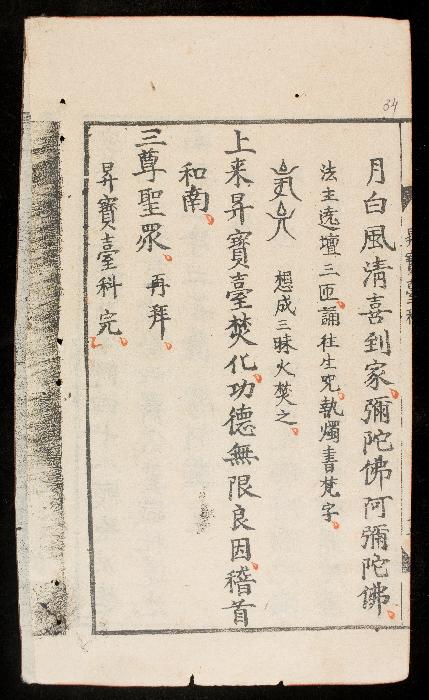 34
月白風清喜到家彌陀佛阿彌陀佛
法主遶壇三匝誦往生咒執燭書梵字
想成三昧火焚之
上来昇寳臺焚化功德無限良因稽首
和南
三尊聖眾 再拜
昇寳臺科完